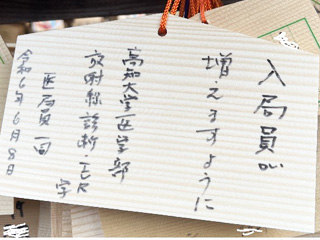 入局員が
増えますように
高知大学医学部
放射線診断・IVR
学
医局員一同
令和6年6月8日